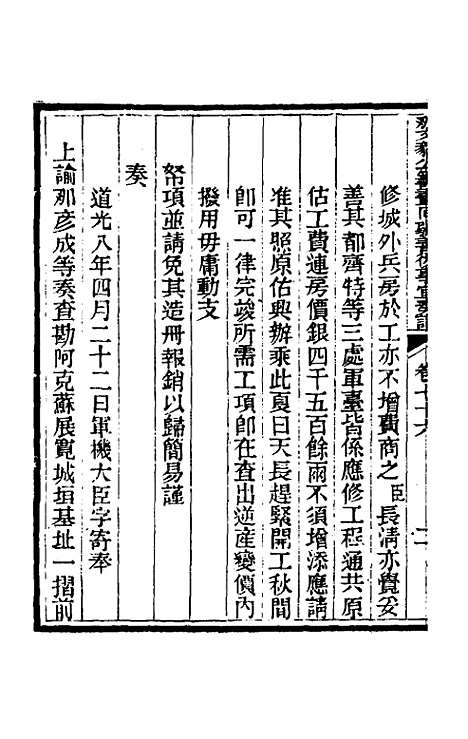 修城外兵房於工亦不增費商之臣長淸亦覺妥
善其都齊特等三處軍臺皆係應修工程通共原
估工費連房價銀四千五百餘兩不須增添應請
准其照原佑興辦乘此夏日天長趕緊開工秋間
卽可一律完竣所需工項卽在查出逆産變價內
撥用毋庸動支
帑項並請免其造冊報銷以歸簡易謹
奏
道光八年四月二十二日軍機大臣字寄奉
上諭那彥成等奏查勘阿克蘇展寬城垣基址一摺前
卷七十六
二